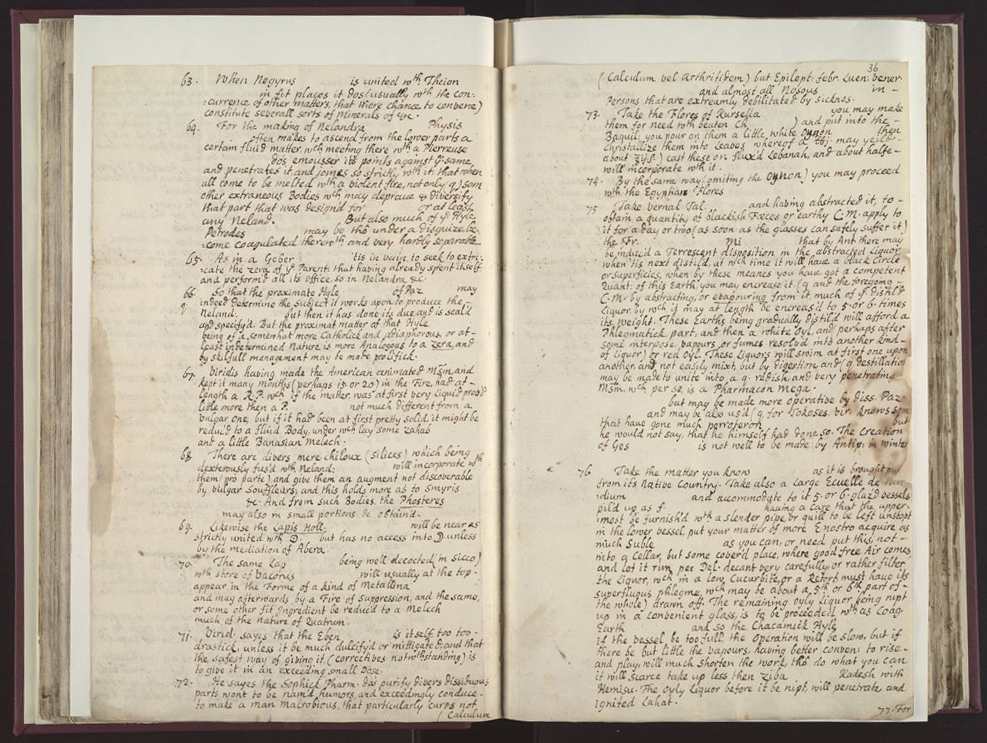 63. When Negyrus is united wth Theion
in fit places it does (usually wth the con-
:currence of other matters, that there chance to convene)
constitute severall sorts of Minerals of &c.
64. For the making of Nelandra Physis
often makes to ascend from the lower parts a
certain fluid matter wch meeting there wth a
dos emousser its points against ye same,
and penetrates it and joines so strictly wth it, that when
all come to be melted wth a violent fire, not only q) som
other extraneous Bodies wch may deprave & diversify
that part that was designd for or at least
any Neland. But also much of ye Hyle
Petrodes may be tho under a disguize be-
:come coagulated therewth and very hardly separable.
65. As in a Geber tis in vain to seek to extri-
:cate the zera of ye Parent, that having already spent itself
and perform'd all its office. so in Nelandra &c
66. So that the proximate Hyle of Paz may
indeed determine the subject it works upon to produce the
Neland. but then it has done its due and is seal'd
and specify'd. But the proximat matter of that Hyle
being of a somewhat more Catholick and adiaphorous, or at-
least indetermined Nature is more Analogous to a zera, and
by skilfull management may be made prolifick.
67. Viridis having made the American animated Mgm, and
kept it many months (perhaps 15 or 20) in the Fire, had at-
length a R.P. wch if the matter was at first very Liquid
little more then a P. not much different from a
vulgar one, but if it had been at first pretty solid, it might be
reduc'd to a fluid Body, under wch lay some Zahab
and a little Banasian Melech.
68. There are divers mere chiloux (silices) which being
dexterously fus'd wth Neland: will incorporate wth
them (pro parte) and give them an augment not discoverable
by vulgar Souffleurs, and this holds more as to Smyris
&c. And from such Bodies, the Phosteres
may also in small portions be obtaind.
69. Likewise the Lapis Holl. will be near as
strictly united wth ☉. but has no access into ☽ unless
by the mediation of Abera
70. The same Lap being well decocted in sicco)
wth store of Dacorus will usually at the top-
appear in the Forme of a kind of Metallina
and may afterwards by a Fire of Suppression, and the same,
or some other fit Ingredient be reduc'd to a Melech
much of the nature of Quatrum.
71. Virid. sayes that the Eben is it self too too-
drastick, unless it be much dulcify'd or mittigated and that
the safest way of giving it (correctives notwthstanding) is
to give it in an exceeding small Dose.
72. He sayes the Sophick Pharm. dos purify divers dissituous
parts wont to be nam'd humors, and exceedingly conduce-
to make a man Macrobious, that particularly cures not
(Calculum
36
(Calculum vel Arthritidem) but Epilept: febr. Luen: vener
and almost all Nosous in-
Persons that are extreamly debilitated by sicknes.
73. Take the Flores of Kursella you may make
them for need wth beaten Ch ) and put into the-
Baqui, you pour on them a little, white oynon then
Christallize them into Leaves whereof a tbj. may yeild
about cast these on flux'd Lebanah, and about halfe-
will incorporate wth it.
74. By the same way (omiting the oynon) you may proceed
wth the Egyptian Flores
75 Take vernal Tal. and having abstracted it, to-
obtain a quantity of blackish Fæces or earthy C.M. apply to
it for a day or two (as soon as the glasses can safely suffer it)
the Fr. Mi that by Ant there may
be induc'd a Terrescent disposition in the abstracted Liquor
when tis next distil'd, at wch time it will have a black Circle
or superficies, when by these means you have got a competent
Quant: of this Earth, you may encrease it (q and the foregoing-
C.M. by abstracting, or evapouring from it much of ye distil'd
Liquor by wch it may at length be encreas'd to 5. or 6. times
its weight. These Earths being gradually distil'd will afford a
Phlegmatick part, and then a white Oyl, and perhaps after
some interpos'd vapours, or fumes resolv'd into another kind-
of Liquor) or red Oyl. These Liquors will swim at first one upon
another and not easily mixt, but by digestion, and (q destillation
may be made to unite into a q. redish, and very penetrating
Msm. wch per se is a Pharmacon Mega.
but may be made more operative by diss. Paz
and may be also us'd (q. for Tokoses. Vir. knows som
that have gone much porroteron but
he would not say, that he himself had done so. The Creation
of Ges is not well to be made by Antip: in winter
76. Take the matter you know as it is brought
from its Native Country. Take also a Large Ecuelle de
:idium and accommodate to it 5. or 6. glazd vessels
pil'd up as f having a care that the upper-
:most be furnish'd wth a slender pipe, or quill to be left unstopt
in the lowest vessel, put your matter of more Enostro acquire as
much Suble as you can, or need put this, not-
into a Cellar, but some cover'd place, where good free Air comes
and let it run per Del. decant very carefully or rather filter
the Liquor, wch in a low Cucurbite, or a Retort must have its
superfluous phlegme, wch may be about a 5th or 6th part of
the whole) drawn off. The remaining oyly Liquor being nipt
up in a convenient glass, is to be proceeded wth as Coag.
Earth and so the Chacamick Hyle
if the vessel, be too full, the Operation will be slow, but if
there be but little the vapours, having better conven: to rise-
and play, will much shorten the work, tho' do what you can
it will scarce take up less then ziba Kadesh with
Hemisu. The oyly Liquor before it be nipt, will penetrate and
ignited Lahat.
77. For